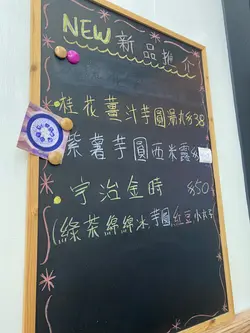 NEW 新品推介
桂花薑汁芋圓湯丸 $38
紫薯芋圓西米露 $
宇治金時 $50
(綠茶綿綿冰,芋圓,紅豆,小丸子)